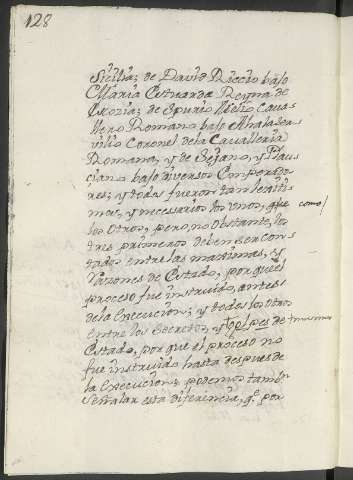 128
Sicilia; de David Riccio bajo
Maria Estuarda Reyna de
Escozia; de Spurio Melio Cava-
llero Romano bajo Ahala Ser-
vilio Coronel de la Cavalleria
Romana, y de Sejano, y Plau-
ciano bajo diversos Emperado-
res; y todas fueron tan legiti-
mas, y necessarias los unos, que como
los otros, pero no obstante, los
tres primeros deben ser con-
tados entre las maximas, y
razones de Estado, porque el
proceso fue instruido, antes
de la execucion; y todos los otros
entre los secretos, y de mismos
Estado, por que el proceso no
fue instruido hasta despues de
la execucion; podemos tambn
señalar esta diferencia, qe por